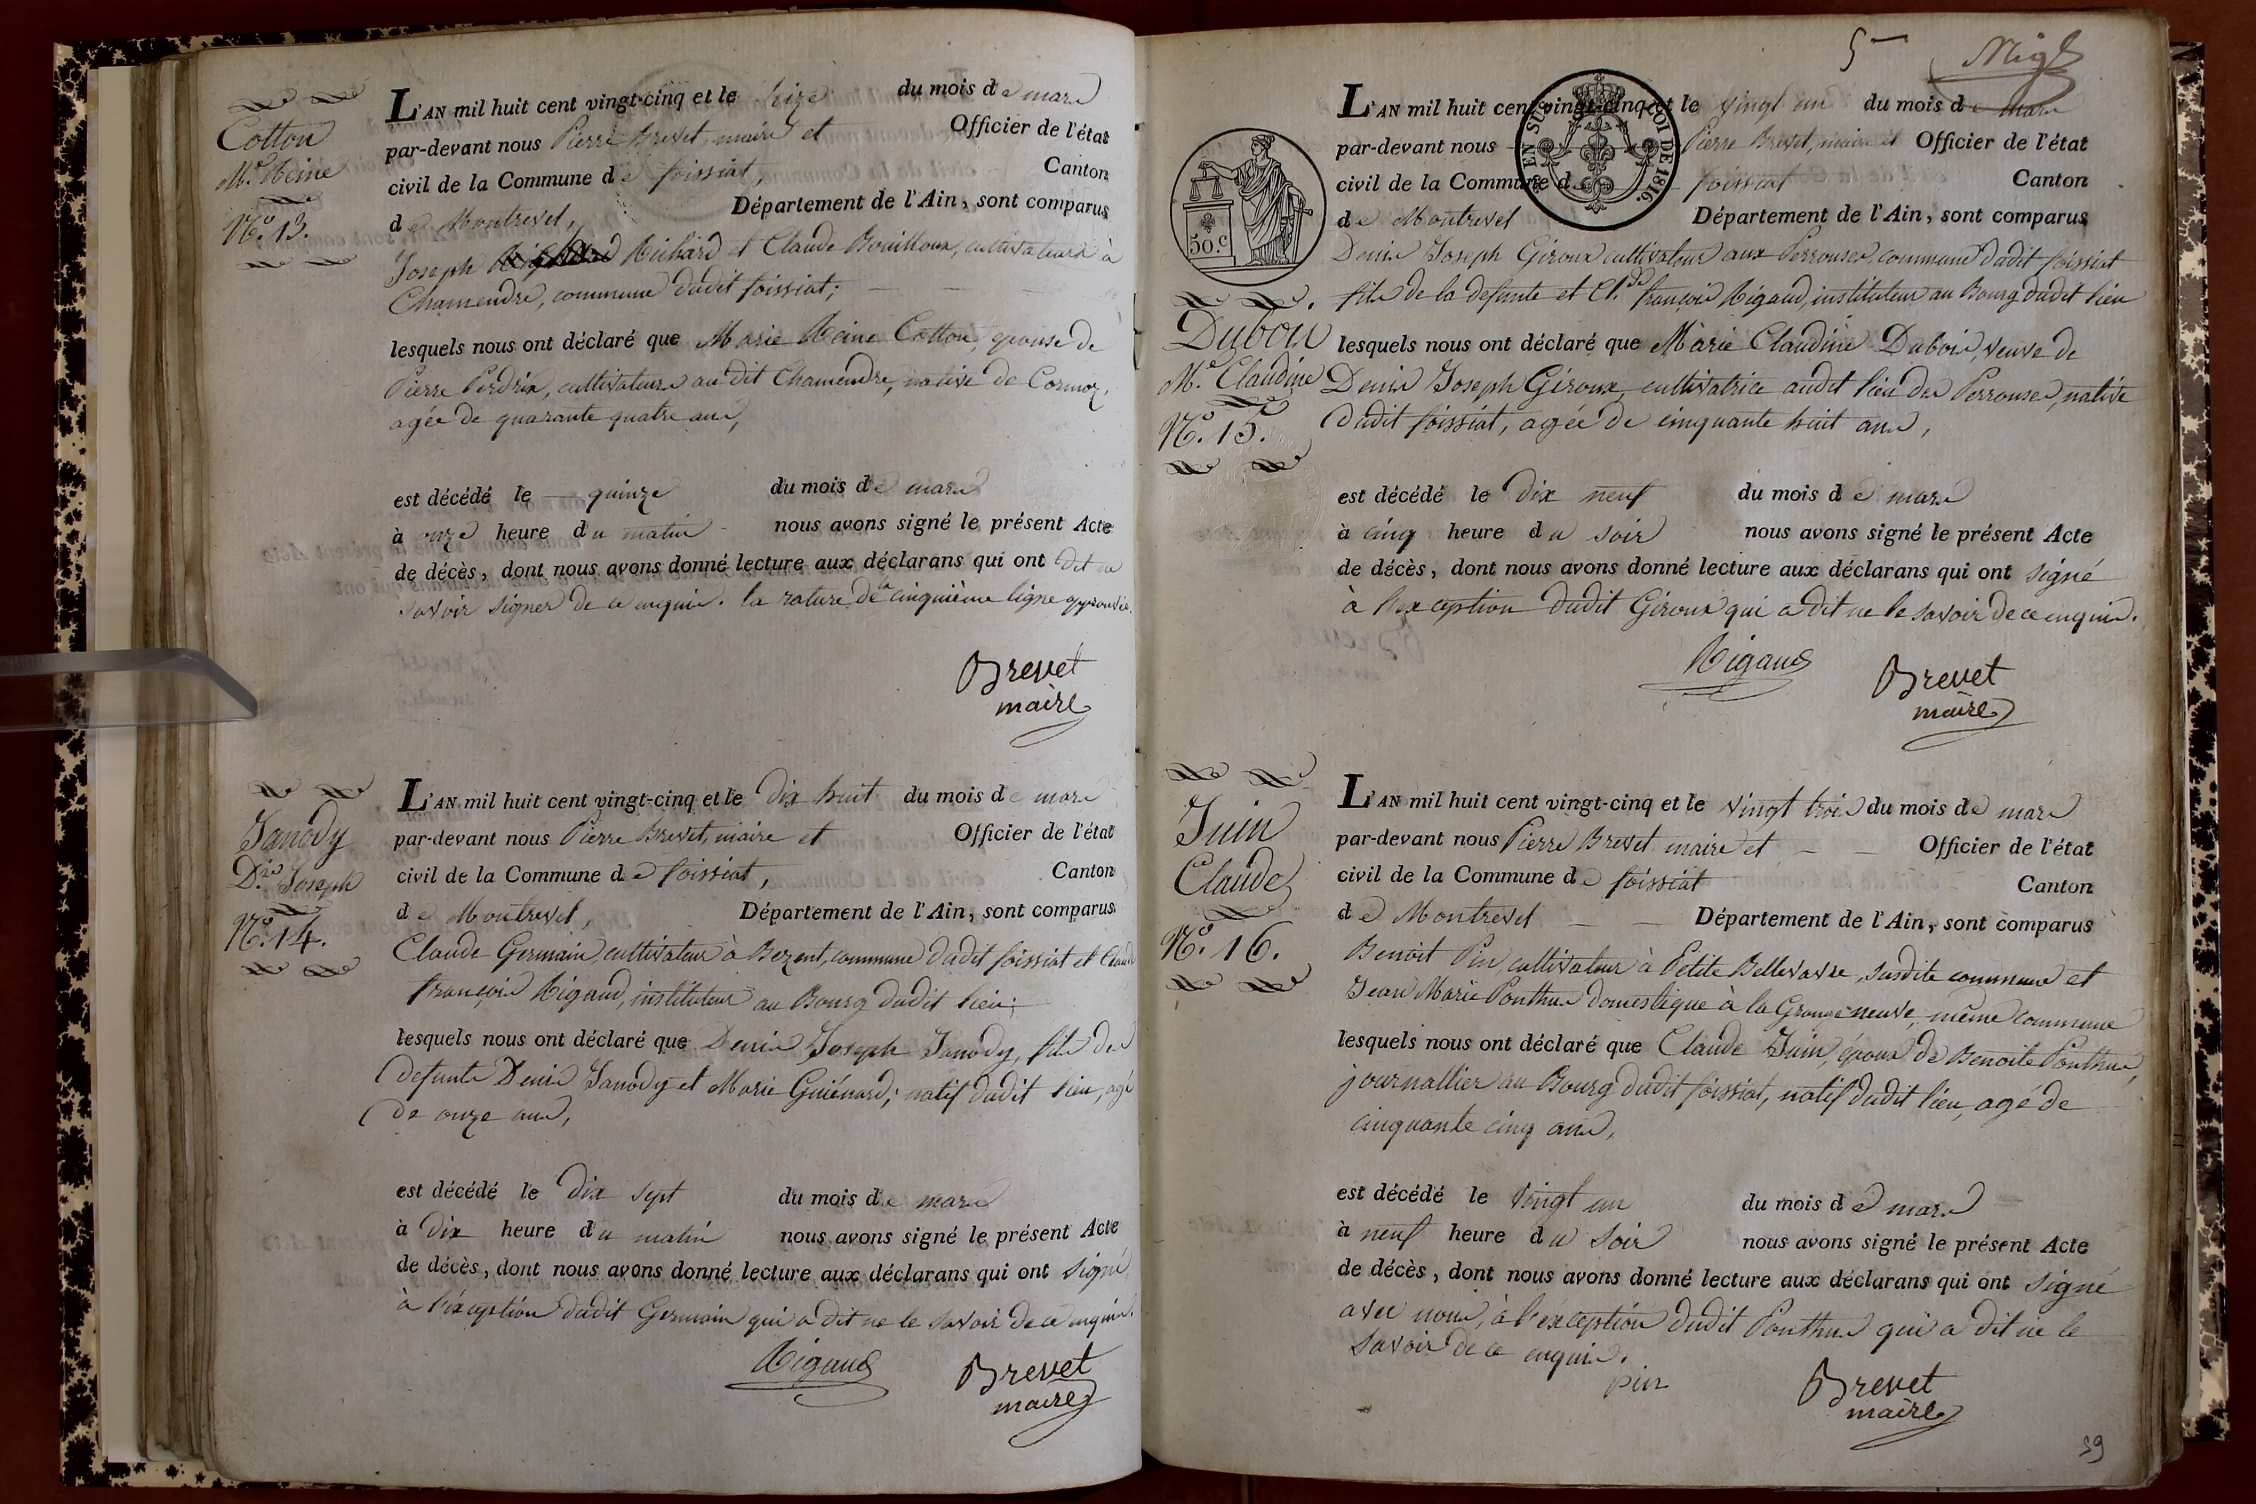 Cotton
M.e Reine
N.o 13.
L'AN mil huit cent vingt-cinq et le seize du mois de mars
par-devant nous Pierre Brevet, maire et Officier de l'état
civil de la Commune de foissiat, Canton
de Montrevel, Département de l'Ain, sont comparus
Joseph Richard et Claude Bouilloux, cultivateurs à
Chamendre, commune dudit foissiat;
lesquels nous ont déclaré que Marie Reine Cotton, epouse de
Pierre Perdrix, cultivateurs au dit Chamendre, native de Cormoz,
agée de quarante quatre ans,
est décédé le quinze du mois de mars
à onze heure du matin nous avons signé le présent Acte
de décès, dont nous avons donné lecture aux déclarans qui ont dit ne
savoir signer de ce enquis. la rature de la cinquième ligne approuvée.
Brevet
maire
Janody
D.is Joseph
N.o 14.
L'AN mil huit cent vingt-cinq et le dix huit du mois de mars
par-devant nous Pierre Brevet, maire et Officier de l'état
civil de la Commune de foissiat, Canton
de Montrevel, Département de l'Ain, sont comparus
Claude Germain, cultivateur à Bezent, commune dudit foissiat et Claude
françois Rigaud, instituteur au Bourg dudit lieu;
lesquels nous ont déclaré que Denis Joseph Janody, fils de
defunts Denis Janody et Marie Guiénard; natif dudit lieu, agé
de onze ans,
est décédé le dix sept du mois de mars
à dix heure du matin nous avons signé le présent Acte
de décès, dont nous avons donné lecture aux déclarans qui ont signé
à l'exception dudit Germain qui a dit ne le savoir de ce enquis.
Rigaud
Brevet
maire
5
50.c
EN SUS
LOI DE 1816.
L'AN mil huit cent vingt-cinq et le vingt un du mois de mars
par-devant nous Pierre Brevet, maire et Officier de l'état
civil de la Commune de foissiat Canton
de Montrevel Département de l'Ain, sont comparus
Denis Joseph Giroux cultivateur aux Perrouses, commune dudit foissiat
fils de la defunte et Cl.de françois Rigaud, instituteur au Bourg dudit lieu
Dubois
M.e Claudine
N.o 15.
lesquels nous ont déclaré que Marie Claudine Dubois, veuve de
Denis Joseph Giroux, cultivatrice audit lieu des Perrouses, native
dudit foissiat, agée de cinquante huit ans,
est décédé le dix neuf du mois de mars
à cinq heure du soir nous avons signé le présent Acte
de décès, dont nous avons donné lecture aux déclarans qui ont signé
à l'exception dudit Giroux qui a dit ne le savoir de ce enquis.
Rigaud
Brevet
maire
Juin
Claude
N.o 16.
L'AN mil huit cent vingt-cinq et le vingt trois du mois de mars
par-devant nous Pierre Brevet maire et Officier de l'état
civil de la Commune de foissiat Canton
de Montrevel Département de l'Ain, sont comparus
Benoit Pin, cultivateur à Petite Bellevavre, susdite commune et
Jean Marie Ponthus domestique à la Grange neuve, même commune
lesquels nous ont déclaré que Claude Juin, époux de Benoite Ponthus,
journallier au Bourg dudit foissiat, natif dudit lieu, agé de
cinquante cinq ans,
est décédé le vingt un du mois de mars
à neuf heure du soir nous avons signé le présent Acte
de décès, dont nous avons donné lecture aux déclarans qui ont signé
avec nous, à l'exception dudit Ponthus qui a dit ne le
savoir de ce enquis.
pin
Brevet
maire
59